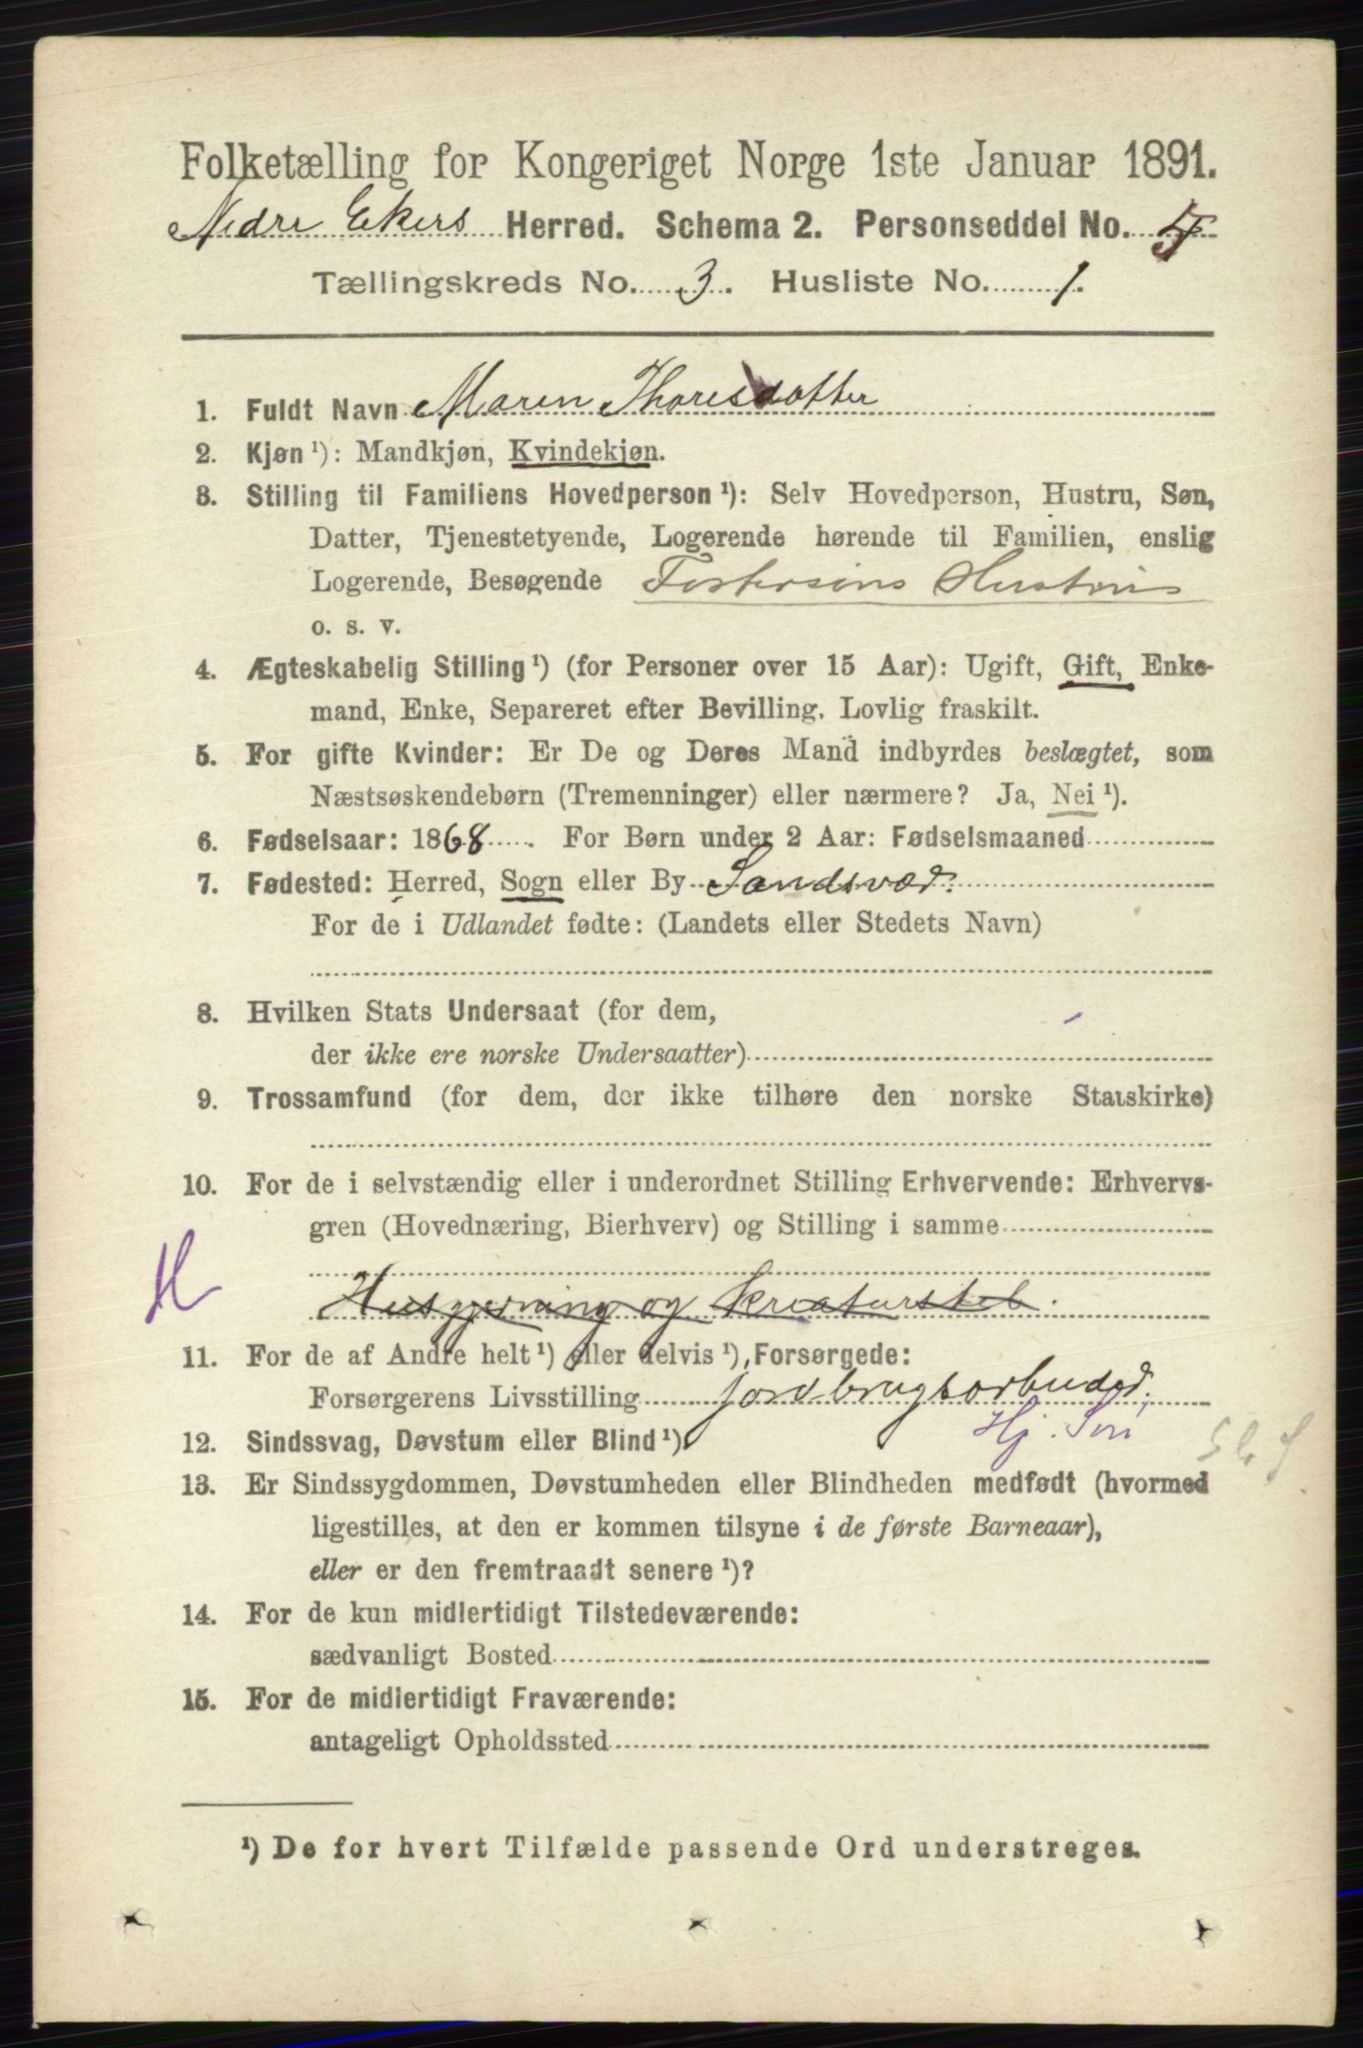 Folketælling for Kongeriget Norge 1ste Januar 1891.
Nedre Ekers Herred. Schema 2. Personseddel No. 5
Tællingskreds No. 3. Husliste No. 1.
1. Fuldt Navn Maren Thoresdatter
2. Kjøn ¹): Mandkjøn, Kvindekjøn.
3. Stilling til Familiens Hovedperson ¹): Selv Hovedperson, Hustru, Søn,
Datter, Tjenestetyende, Logerende hørende til Familien, enslig
Logerende, Besøgende Fostersøns Hustru
o. s. v.
4. Ægteskabelig Stilling ¹) (for Personer over 15 Aar): Ugift, Gift, Enke-
mand, Enke, Separeret efter Bevilling. Lovlig fraskilt.
5. For gifte Kvinder: Er De og Deres Mand indbyrdes beslægtet, som
Næstsøskendebørn (Tremenninger) eller nærmere? Ja, Nei ¹).
6. Fødselsaar: 1868. For Børn under 2 Aar: Fødselsmaaned
7. Fødested: Herred, Sogn eller By Sandsvær.
For de i Udlandet fødte: (Landets eller Stedets Navn)
8. Hvilken Stats Undersaat (for dem,
der ikke ere norske Undersaatter)
9. Trossamfund (for dem, der ikke tilhøre den norske Statskirke)
10. For de i selvstændig eller i underordnet Stilling Erhvervende: Erhvervs-
gren (Hovednæring, Bierhverv) og Stilling i samme
H Husgjerning og Kreaturstel.
11. For de af Andre helt ¹) eller delvis ¹) Forsørgede:
Forsørgerens Livsstilling jordbrugsarbeider.
12. Sindssvag, Døvstum eller Blind ¹). Hj. Søn
13. Er Sindssygdommen, Døvstumheden eller Blindheden medfødt (hvormed
ligestilles, at den er kommen tilsyne i de første Barneaar),
eller er den fremtraadt senere ¹)?
14. For de kun midlertidigt Tilstedeværende:
sædvanligt Bosted
15. For de midlertidigt Fraværende:
antageligt Opholdssted
¹) De for hvert Tilfælde passende Ord understreges.